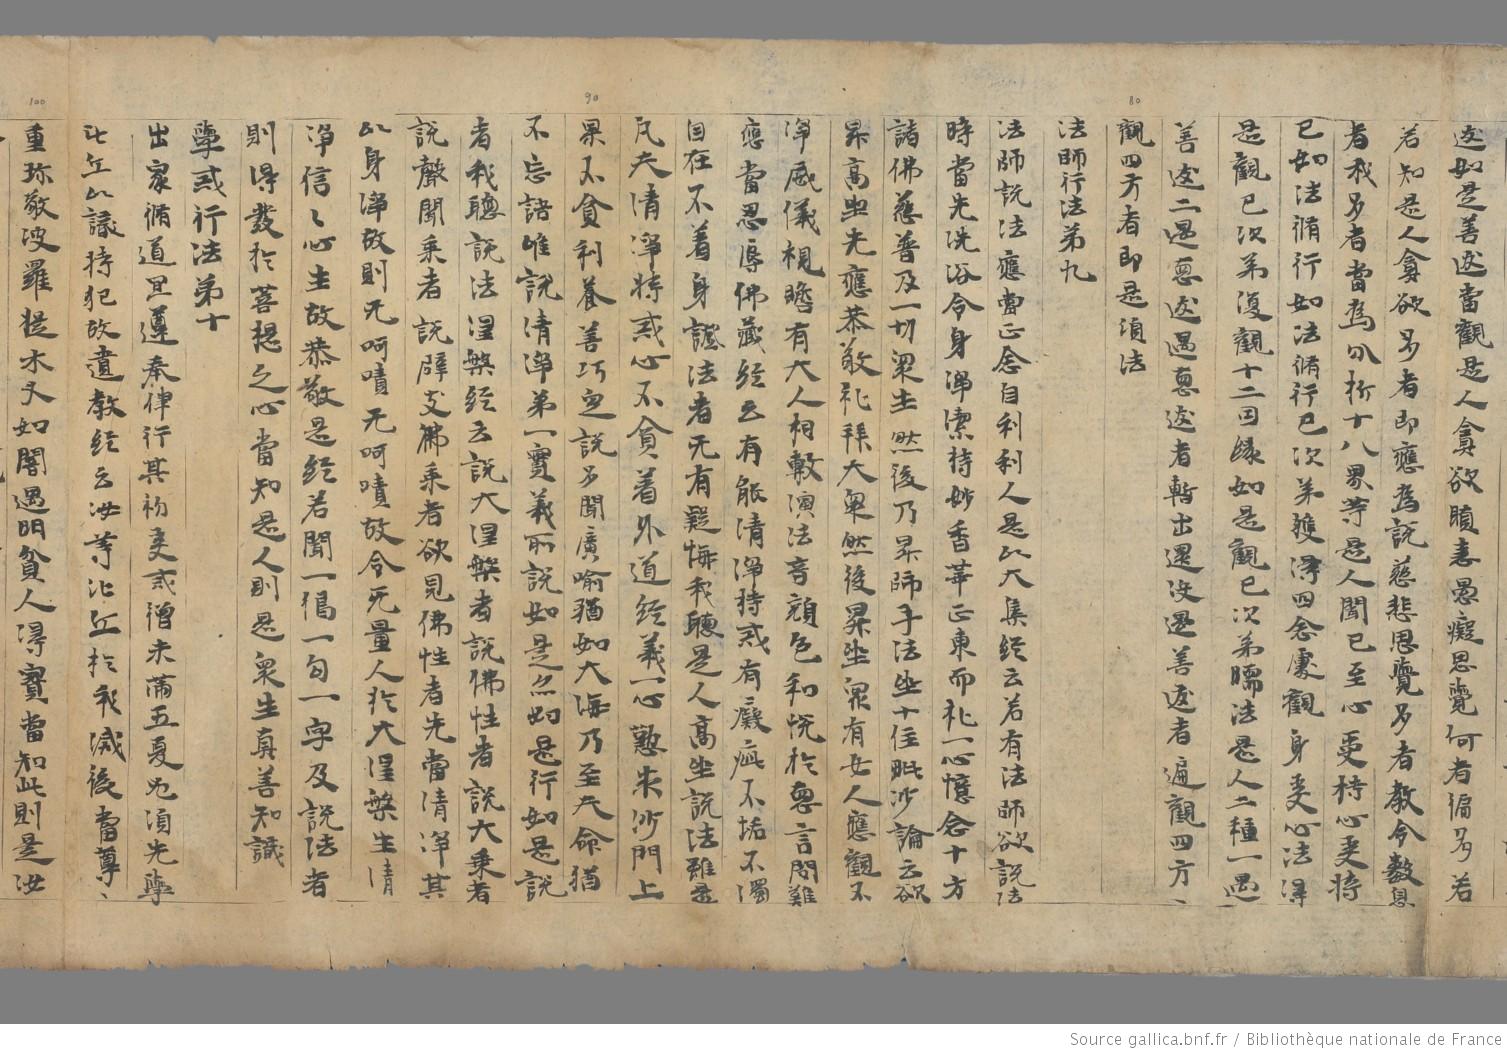 80
90
100
迹如是善迹當觀是人貪欲瞋恚愚癡思覺何者徧多若
若知是人貪欲多者即應為說慈悲思覺多者教令數息
者我多者當為分析十八界等是人聞已至心受持心受持
已如法脩行如法脩行已次弟獲得四念處觀身受心法得
是觀已次弟復觀十二因緣如是觀已次弟暖法是人二種一遇
善迹二遇惡迹遇惡迹者暫出還沒遇善迹者遍觀四方
觀四方者即是頂法
法師行法弟九
法師說法應當正念自利利人是以大集經云若有法師欲說法
時當先洗浴令身淨潔持妙香華正東而礼一心憶念十方
諸佛慈普及一切眾生然後乃昇師子法坐十住毗沙論云欲
昇高坐先應恭敬礼拜大眾然後昇坐眾有女人應觀不
淨威儀視瞻有大人相敷演法音顏色和悅於惡言問難
應當忍辱佛藏經云有能清淨持戒有癡疵不垢不濁
自在不着身證法者无有疑悔我聽是人高坐說法雖是
凡夫清淨持戒心不貪着外道經義一心懃求沙門上
果不貪利養善巧定說多聞廣喻猶如大海乃至失命猶
不忘語唯說清淨弟一實義所說如是忽如是行如是說
者我聽說法涅槃經云說大涅槃者說佛性者說大乘者
說聲聞乘者說辟支佛乘者欲見佛性者先當清淨其
以身淨故則无呵嘖无呵嘖故令无量人於大涅槃生清
淨信〻心生故恭敬是經若聞一偈一句一字及說法者
則得發於菩提之心當知是人則是眾生真善知識
學戒行法弟十
出家脩道里遵奉律行其初受戒僧未滿五夏先須先學
比丘以識持犯故遺教經云汝等比丘於我滅後當尊〻
重珎敬波羅提木叉如闇遇明貧人得寶當知此則是汝
Source gallica.bnf.fr / Bibliothèque nationale de France